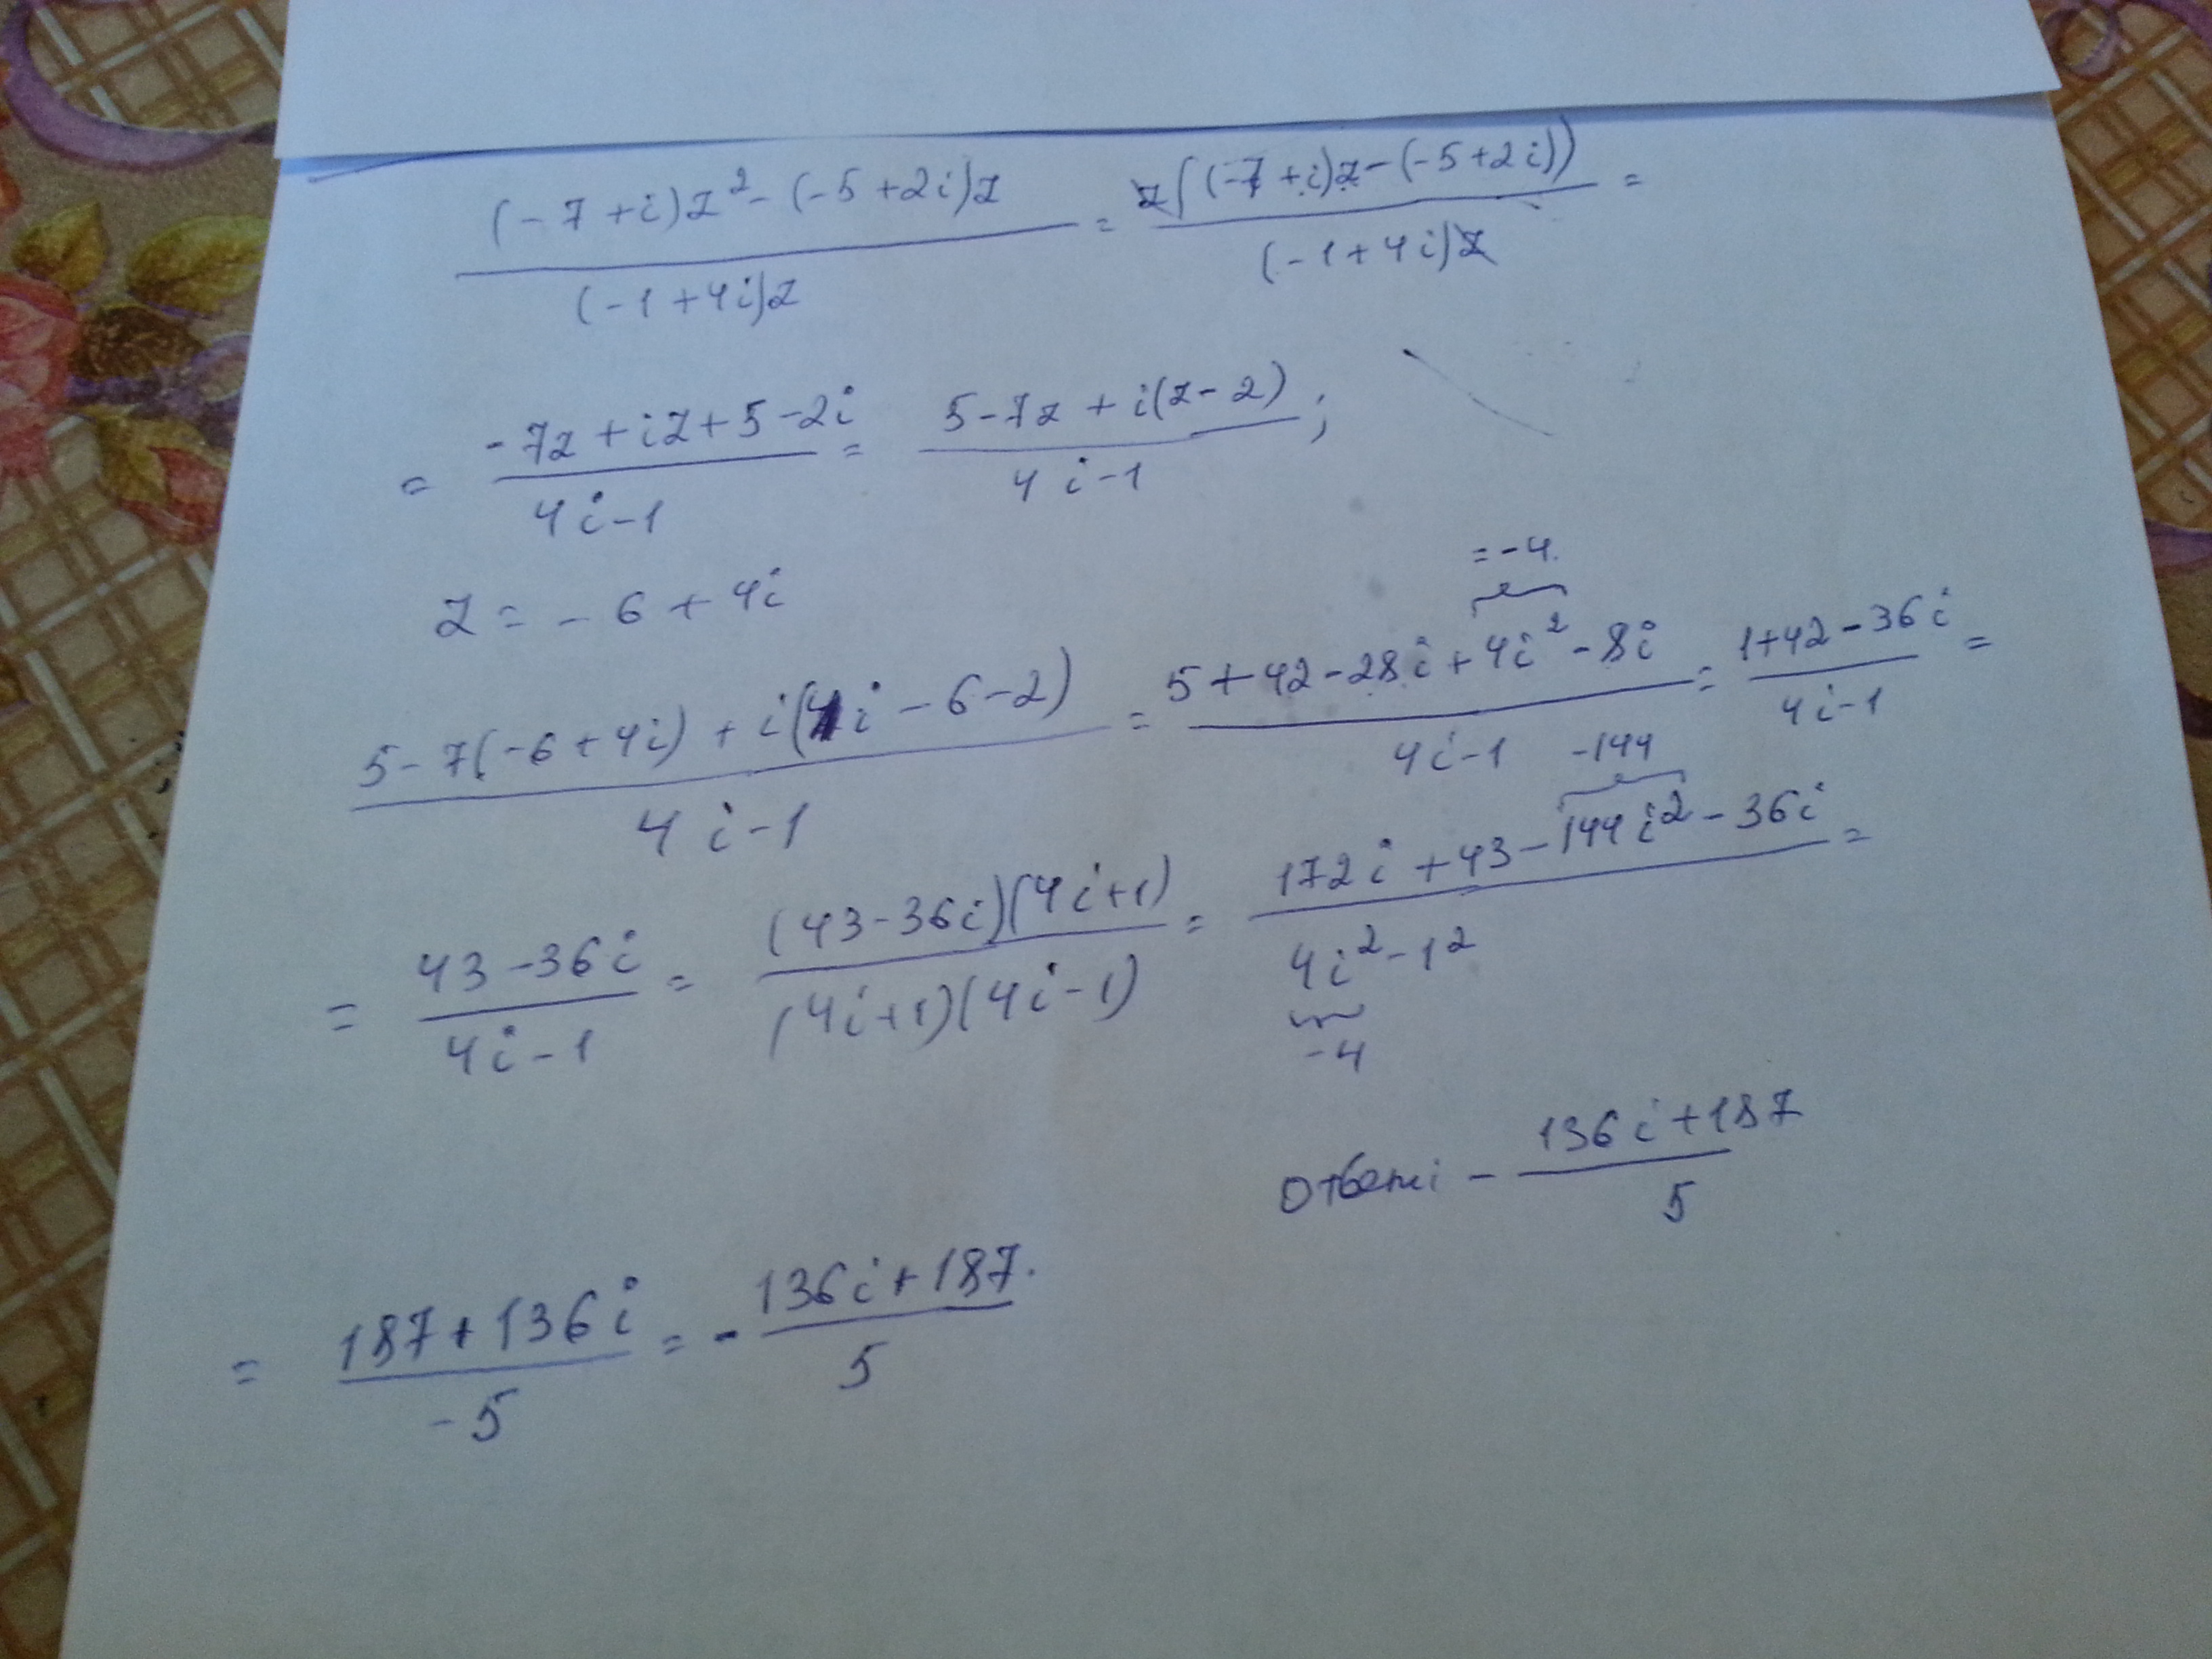 ((-7+i)z² - (-5+2i)z)/((-1+4i)z) = (z((-7+i)z-(-5+2i)))/((-1+4i)z) =
= (-7z+iz+5-2i)/(4i-1) = (5-7z+i(z-2))/(4i-1);
z = -6+4i
=-4.
(5-7(-6+4i)+i(4i-6-2))/(4i-1) = (5+42-28i+4i²-8i)/(4i-1) = (1+42-36i)/(4i-1) =
-144
= (43-36i)/(4i-1) = ((43-36i)(4i+1))/((4i+1)(4i-1)) = (172i+43-144i²-36i)/(4i²-1²) =
-4
Ответ: - (136i+187)/5
= (187+136i)/(-5) = - (136i+187)/5.